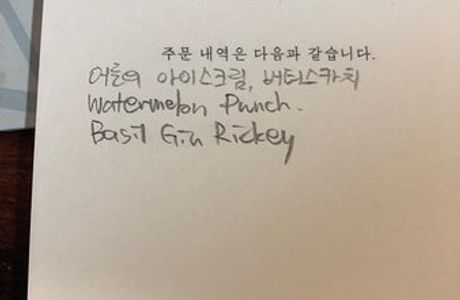 주문 내역은 다음과 같습니다.
어른의 아이스크림, 버터스카치
Watermelon Punch.
Basil Gin Rickey